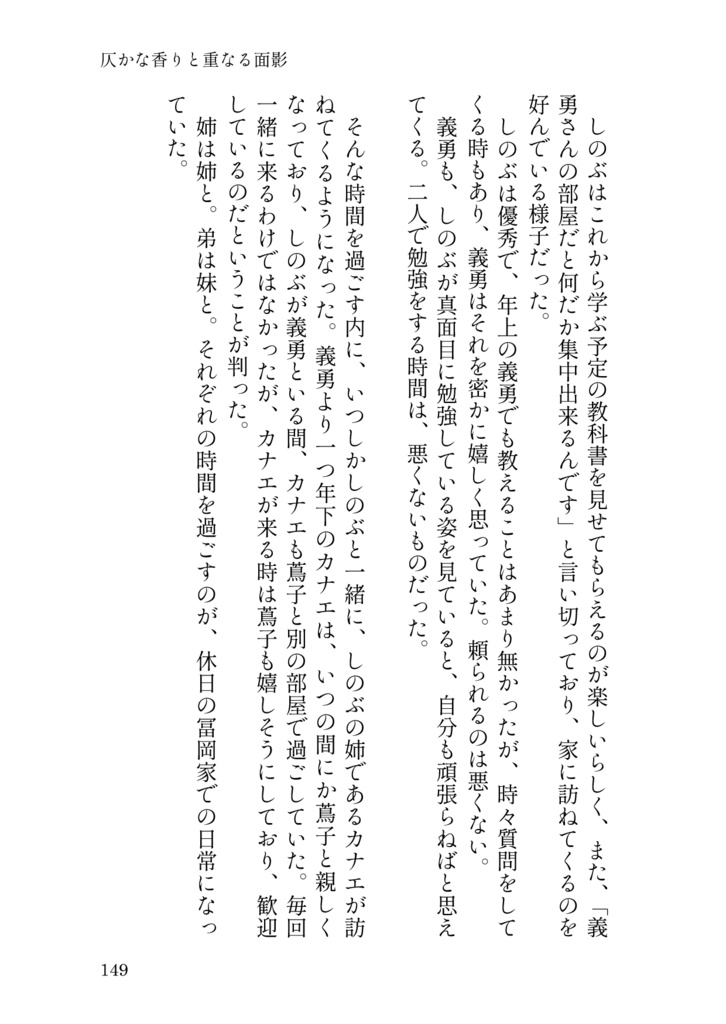 仄かな香りと重なる面影
しのぶはこれから学ぶ予定の教科書を見せてもらえるのが楽しいらしく、また、「義
勇さんの部屋だと何だか集中出来るんです」と言い切っており、家に訪ねてくるのを
好んでいる様子だった。
しのぶは優秀で、年上の義勇でも教えることはあまり無かったが、時々質問をして
くる時もあり、義勇はそれを密かに嬉しく思っていた。頼られるのは悪くない。
義勇も、しのぶが真面目に勉強している姿を見ていると、自分も頑張らねばと思え
てくる。二人で勉強をする時間は、悪くないものだった。
そんな時間を過ごす内に、いつしかしのぶと一緒に、しのぶの姉であるカナエが訪
ねてくるようになった。義勇より一つ年下のカナエは、いつの間にか蔦子と親しく
なっており、しのぶが義勇といる間、カナエも蔦子と別の部屋で過ごしていた。毎回
一緒に来るわけではなかったが、カナエが来る時は蔦子も嬉しそうにしており、歓迎
しているのだということが判った。
姉は姉と。弟は妹と。それぞれの時間を過ごすのが、休日の冨岡家での日常になっ
ていた。
149